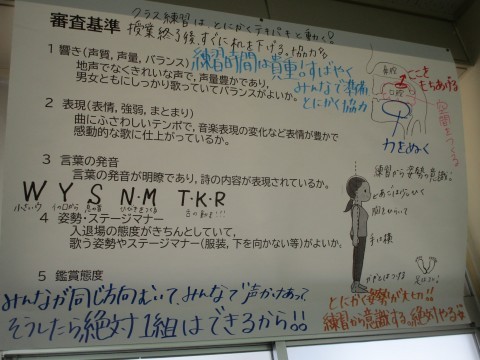 クラス練習は、とにかくテキパキと動く!
審査基準
授業終了後、すぐに机を下げる。協力な
1 響き(声質、声量、バランス)
練習時間は貴重!すばやく
みんなで準備
とにかく協力
地声でなくきれいな声で、声量豊かであり、
男女ともにしっかり歌っていてバランスがよいか。
鼻腔
口腔
ここを
もちあげる
空間をつくる
力をぬく
2 表現(表情、強弱、まとまり)
曲にふさわしいテンポで、音楽表現の変化など表情が豊かで
感動的な歌に仕上がっているか。
3 言葉の発音
言葉の発音が明瞭であり、詩の内容が表現されているか。
W Y S N・M T・K・R
小さいウ
4 姿勢・ステージマナー
入退場の態度がきちんとしていて、
歌う姿勢やステージマナー(服装、下を向かない等)がよいか。
練習から姿勢の意識!
あごはひく
胸を
手は横
かかとはつける
足は
5 鑑賞態度
みんなが同じ方向むいて、みんなで声かけあって、
そうしたら絶対1組はできるから!!
とにかく姿勢が大切!!
練習から意識する。絶対やる